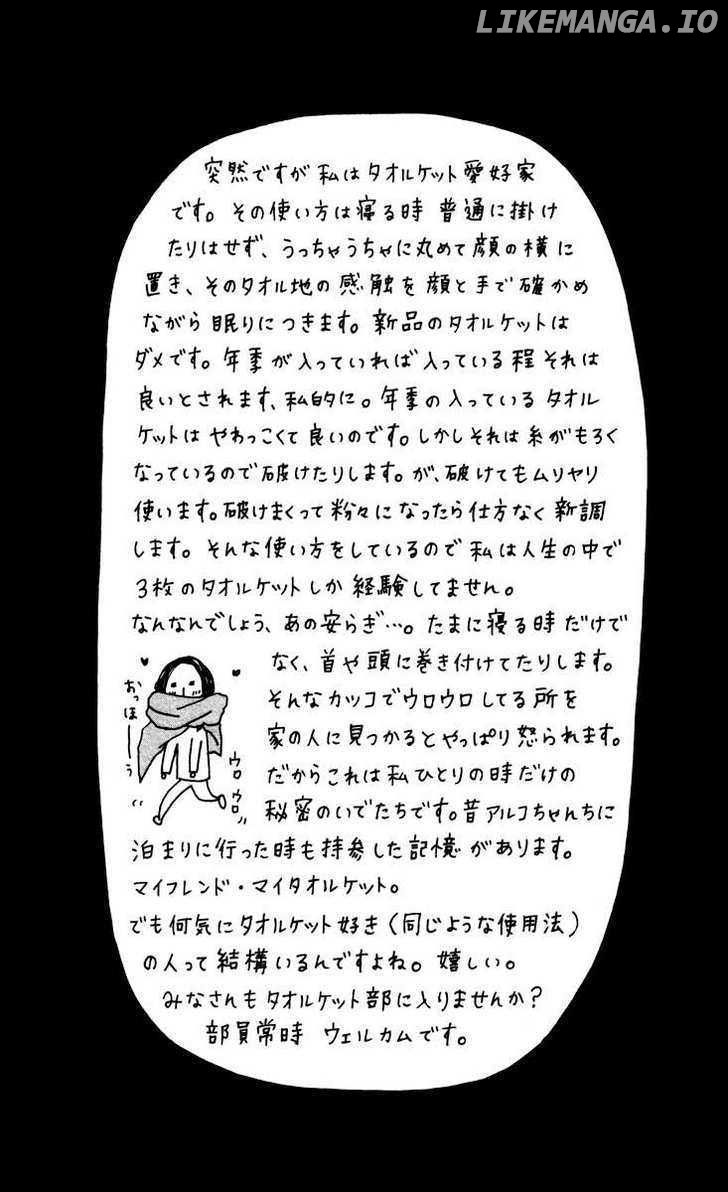 LIKEMANGA.IO
突然ですが私はタオルケット愛好家
です。その使い方は寝る時 普通に掛け
たりはせず、うっちゃうちゃに丸めて顔の横に
置き、そのタオル地の感触を顔と手で確かめ
ながら眠りにつきます。新品のタオルケットは
ダメです。年季が入っていれば入っている程それは
良いとされます、私的に。年季の入っているタオル
ケットは やわっこくて良いのです。しかしそれは糸がもろく
なっているので破けたりします。が、破けてもムリヤリ
使います。破けまくって粉々になったら仕方なく新調
します。そんな使い方をしているので私は人生の中で
3枚のタオルケットしか経験してません。
なんなんでしょう、あの安らぎ…。たまに寝る時だけで
なく、首や頭に巻き付けてたりします。
そんなカッコでウロウロしてる所を
家の人に見つかるとやっぱり怒られます。
だからこれは私ひとりの時だけの
秘密のいでたちです。昔アルコちゃんちに
おっほーう
ウロウロ
泊まりに行った時も持参した記憶があります。
マイフレンド・マイタオルケット。
でも何気にタオルケット好き(同じような使用法)
の人って結構いるんですよね。嬉しい。
みなさんもタオルケット部に入りませんか?
部員常時 ウェルカムです。